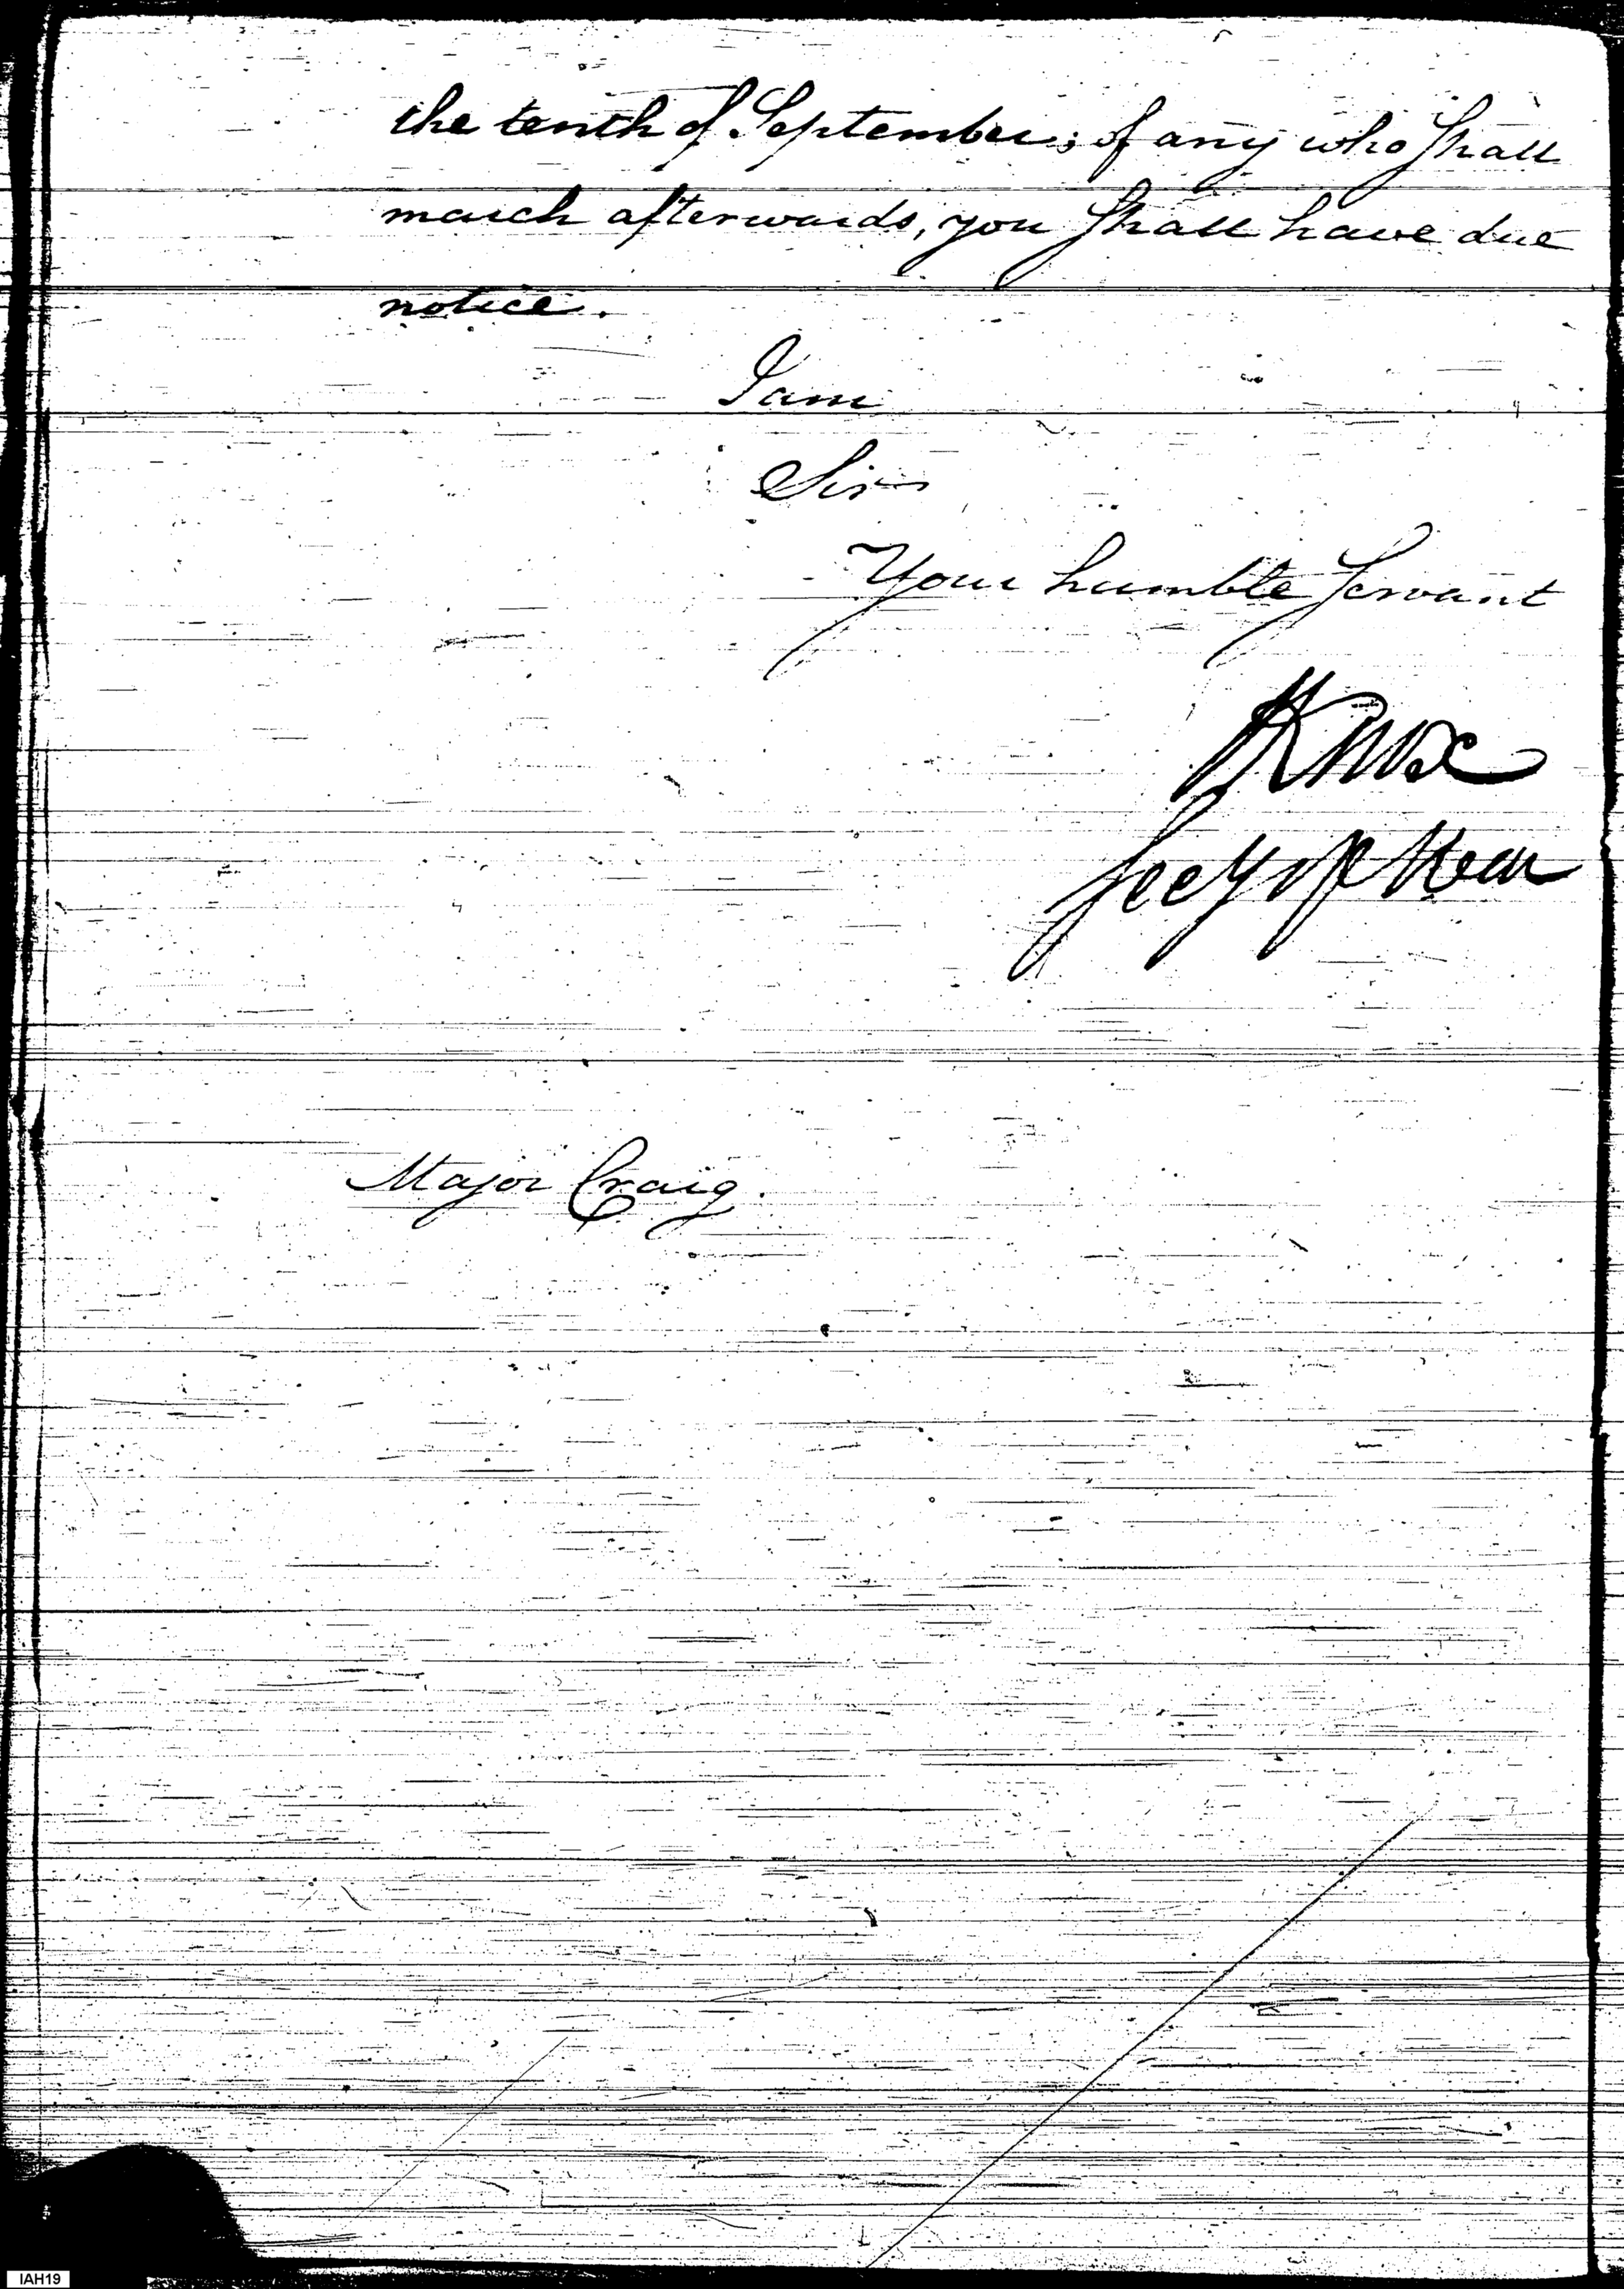 the tenth of September; of any who shall
march afterwards, you shall have due
notice.
I am
Sir
Your humble servant
HKnox
secy of War
Major Craig.
IAH19